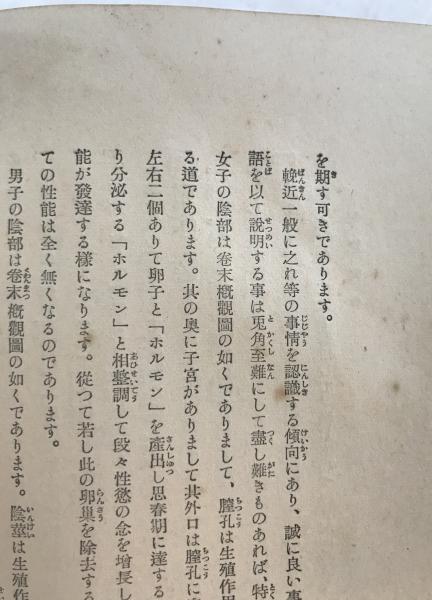 を期す可きであります。
輓近一般に之れ等の事情を認識する傾向にあり、誠に良い事
語を以て説明する事は兎角至難にして盡し難きものあれば、特
女子の陰部は卷末概觀圖の如くでありまして、膣孔は生殖作用
る道であります。其の奧に子宮がありまして其外口は膣孔に
左右二個ありて卵子と「ホルモン」を產出し思春期に達する
り分泌する「ホルモン」と相整調して段々性慾の念を增長し
能が發達する樣になります。從つて若し此の卵巢を除去する
ての性能は全く無くなるのであります。
男子の陰部は卷末概觀圖の如くであります。陰莖は生殖作